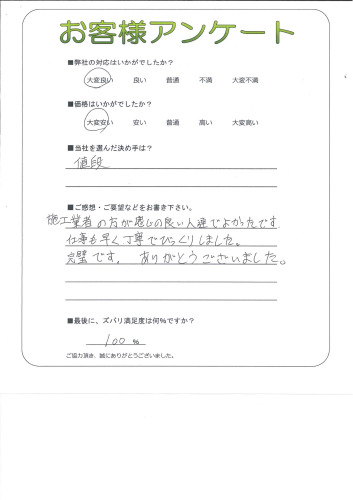 お客様アンケート
■弊社の対応はいかがでしたか？
大変良い 良い 普通 不満 大変不満
■価格はいかがでしたか？
大変安い 安い 普通 高い 大変高い
■当社を選んだ決め手は？
値段
■ご感想・ご要望などをお書き下さい。
施工業者の方が感じの良い人達でよかったです
仕事も早く丁寧でびっくりしました。
完璧です。ありがとうございました。
■最後に、ズバリ満足度は何％ですか？
100 %
ご協力頂き、誠にありがとうございました。